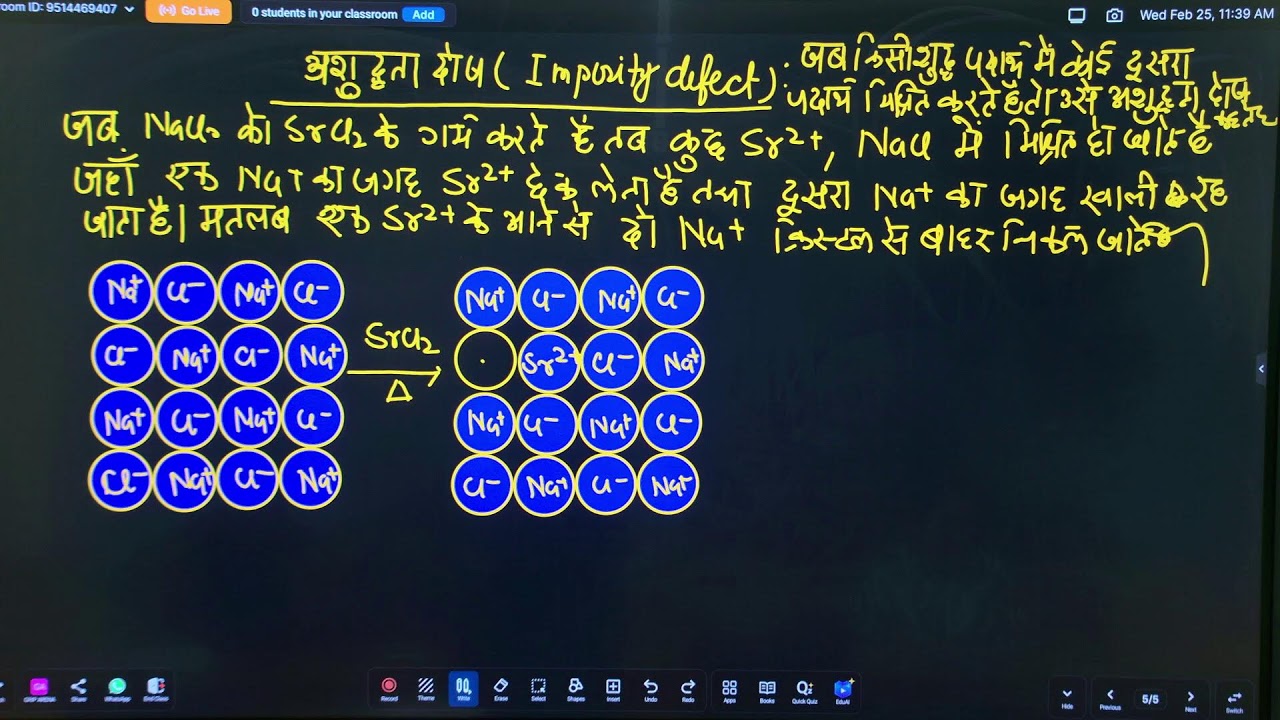 room ID: 9514469407
Go Live
0 students in your classroom Add
Wed Feb 25, 11:39 AM
अशुद्धता दोष ( Impurity defect ) : जब किसी शुद्ध पदार्थ में कोई दूसरा
पदार्थ मिश्रित करते हैं तो उसे अशुद्धता दोष कहते हैं
जब NaCl को SrCl2 के गर्म करते हैं तब कुछ Sr2+, NaCl में मिश्रित हो जाते हैं
जहाँ एक Na+ का जगह Sr2+ ले लेता है तथा दूसरा Na+ का जगह खाली रह
जाता है। मतलब एक Sr2+ के आने से दो Na+ क्रिस्टल से बाहर निकल जाते
Na+ Cl- Na+ Cl- Na+ Cl- Na+ Cl-
Cl- Na+ Cl- Na+ SrCl2 Δ Sr2+ Cl- Na+
Na+ Cl- Na+ Cl- Na+ Cl- Na+ Cl-
Cl- Na+ Cl- Na+ Cl- Na+ Cl- Na+
Share WhatsApp End Class Record Theme Write Erase Select Shapes Insert Undo Redo Apps Books Quick Quiz EduAI Hide Previous 5/5 Next Switch